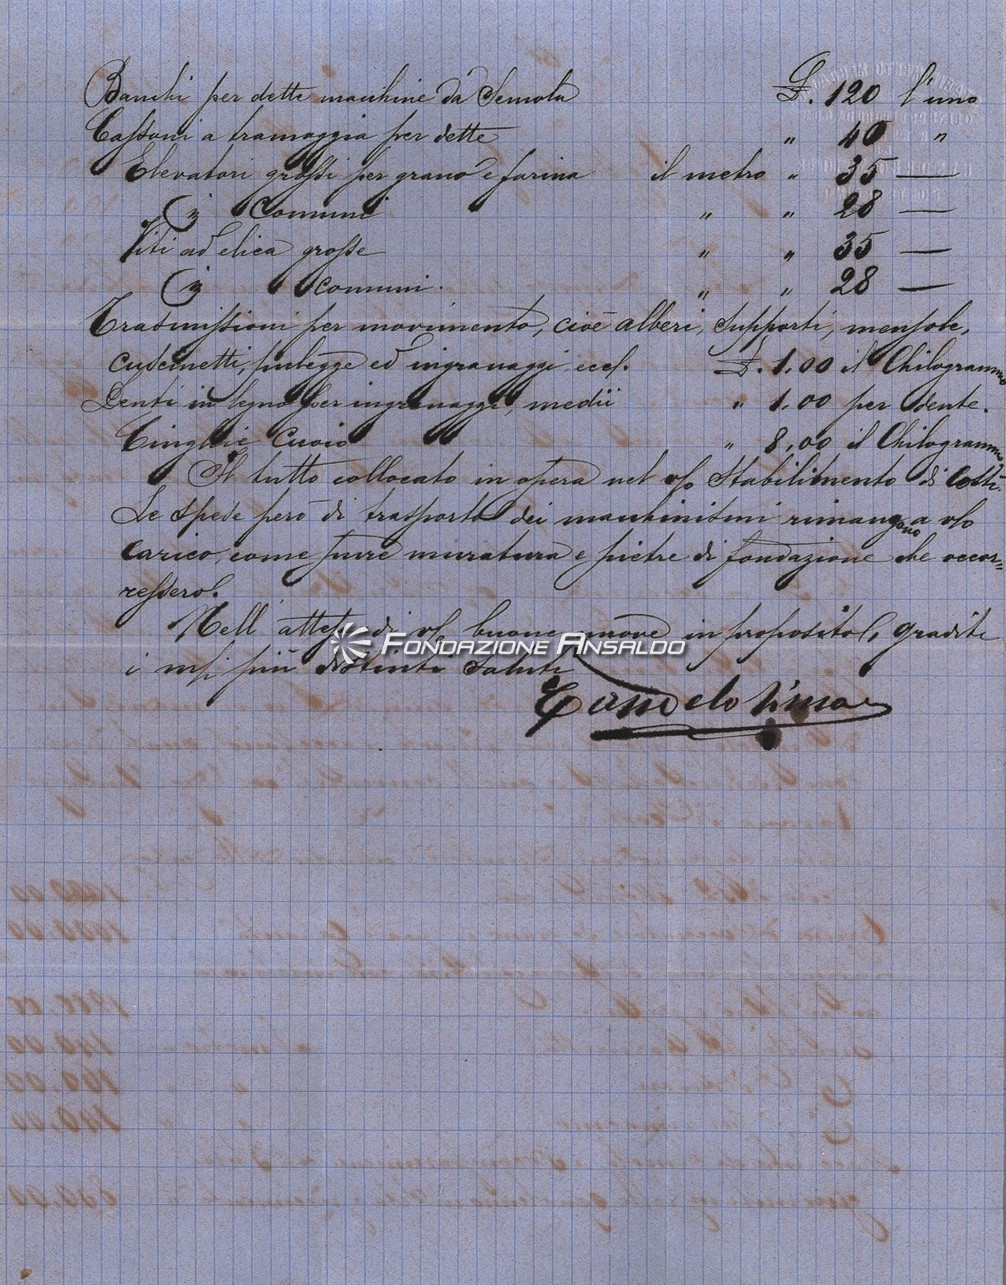 Banchi per dette macchine da Semola £. 120 l'uno
Cassoni a tramoggia per dette " 40 "
Elevatori grossi per grano e farina il metro " 35 —
comuni " " 28 —
Viti ad elica grosse " " 35 —
comuni. " " 28 —
Trasmissioni per movimento, cioè alberi, supporti, mensole,
cuscinetti, pulegge ed ingranaggi, ecc. £. 1,00 il Chilogrammo
Denti in legno per ingranaggi, medii " 1,00 per dente.
Cinghie Cuoio " 8,00 il Chilogrammo
Il tutto collocato in opera nel v/o Stabilimento di Costì.
Le spese però di trasporto dei macchinismi rimangono a v/o
carico, come pure muratura e pietre di fondazione che occor=
ressero.
Nell'attesa di v/e buone nuove in proposito, gradite
i più distinti saluti
Fondazione Ansaldo